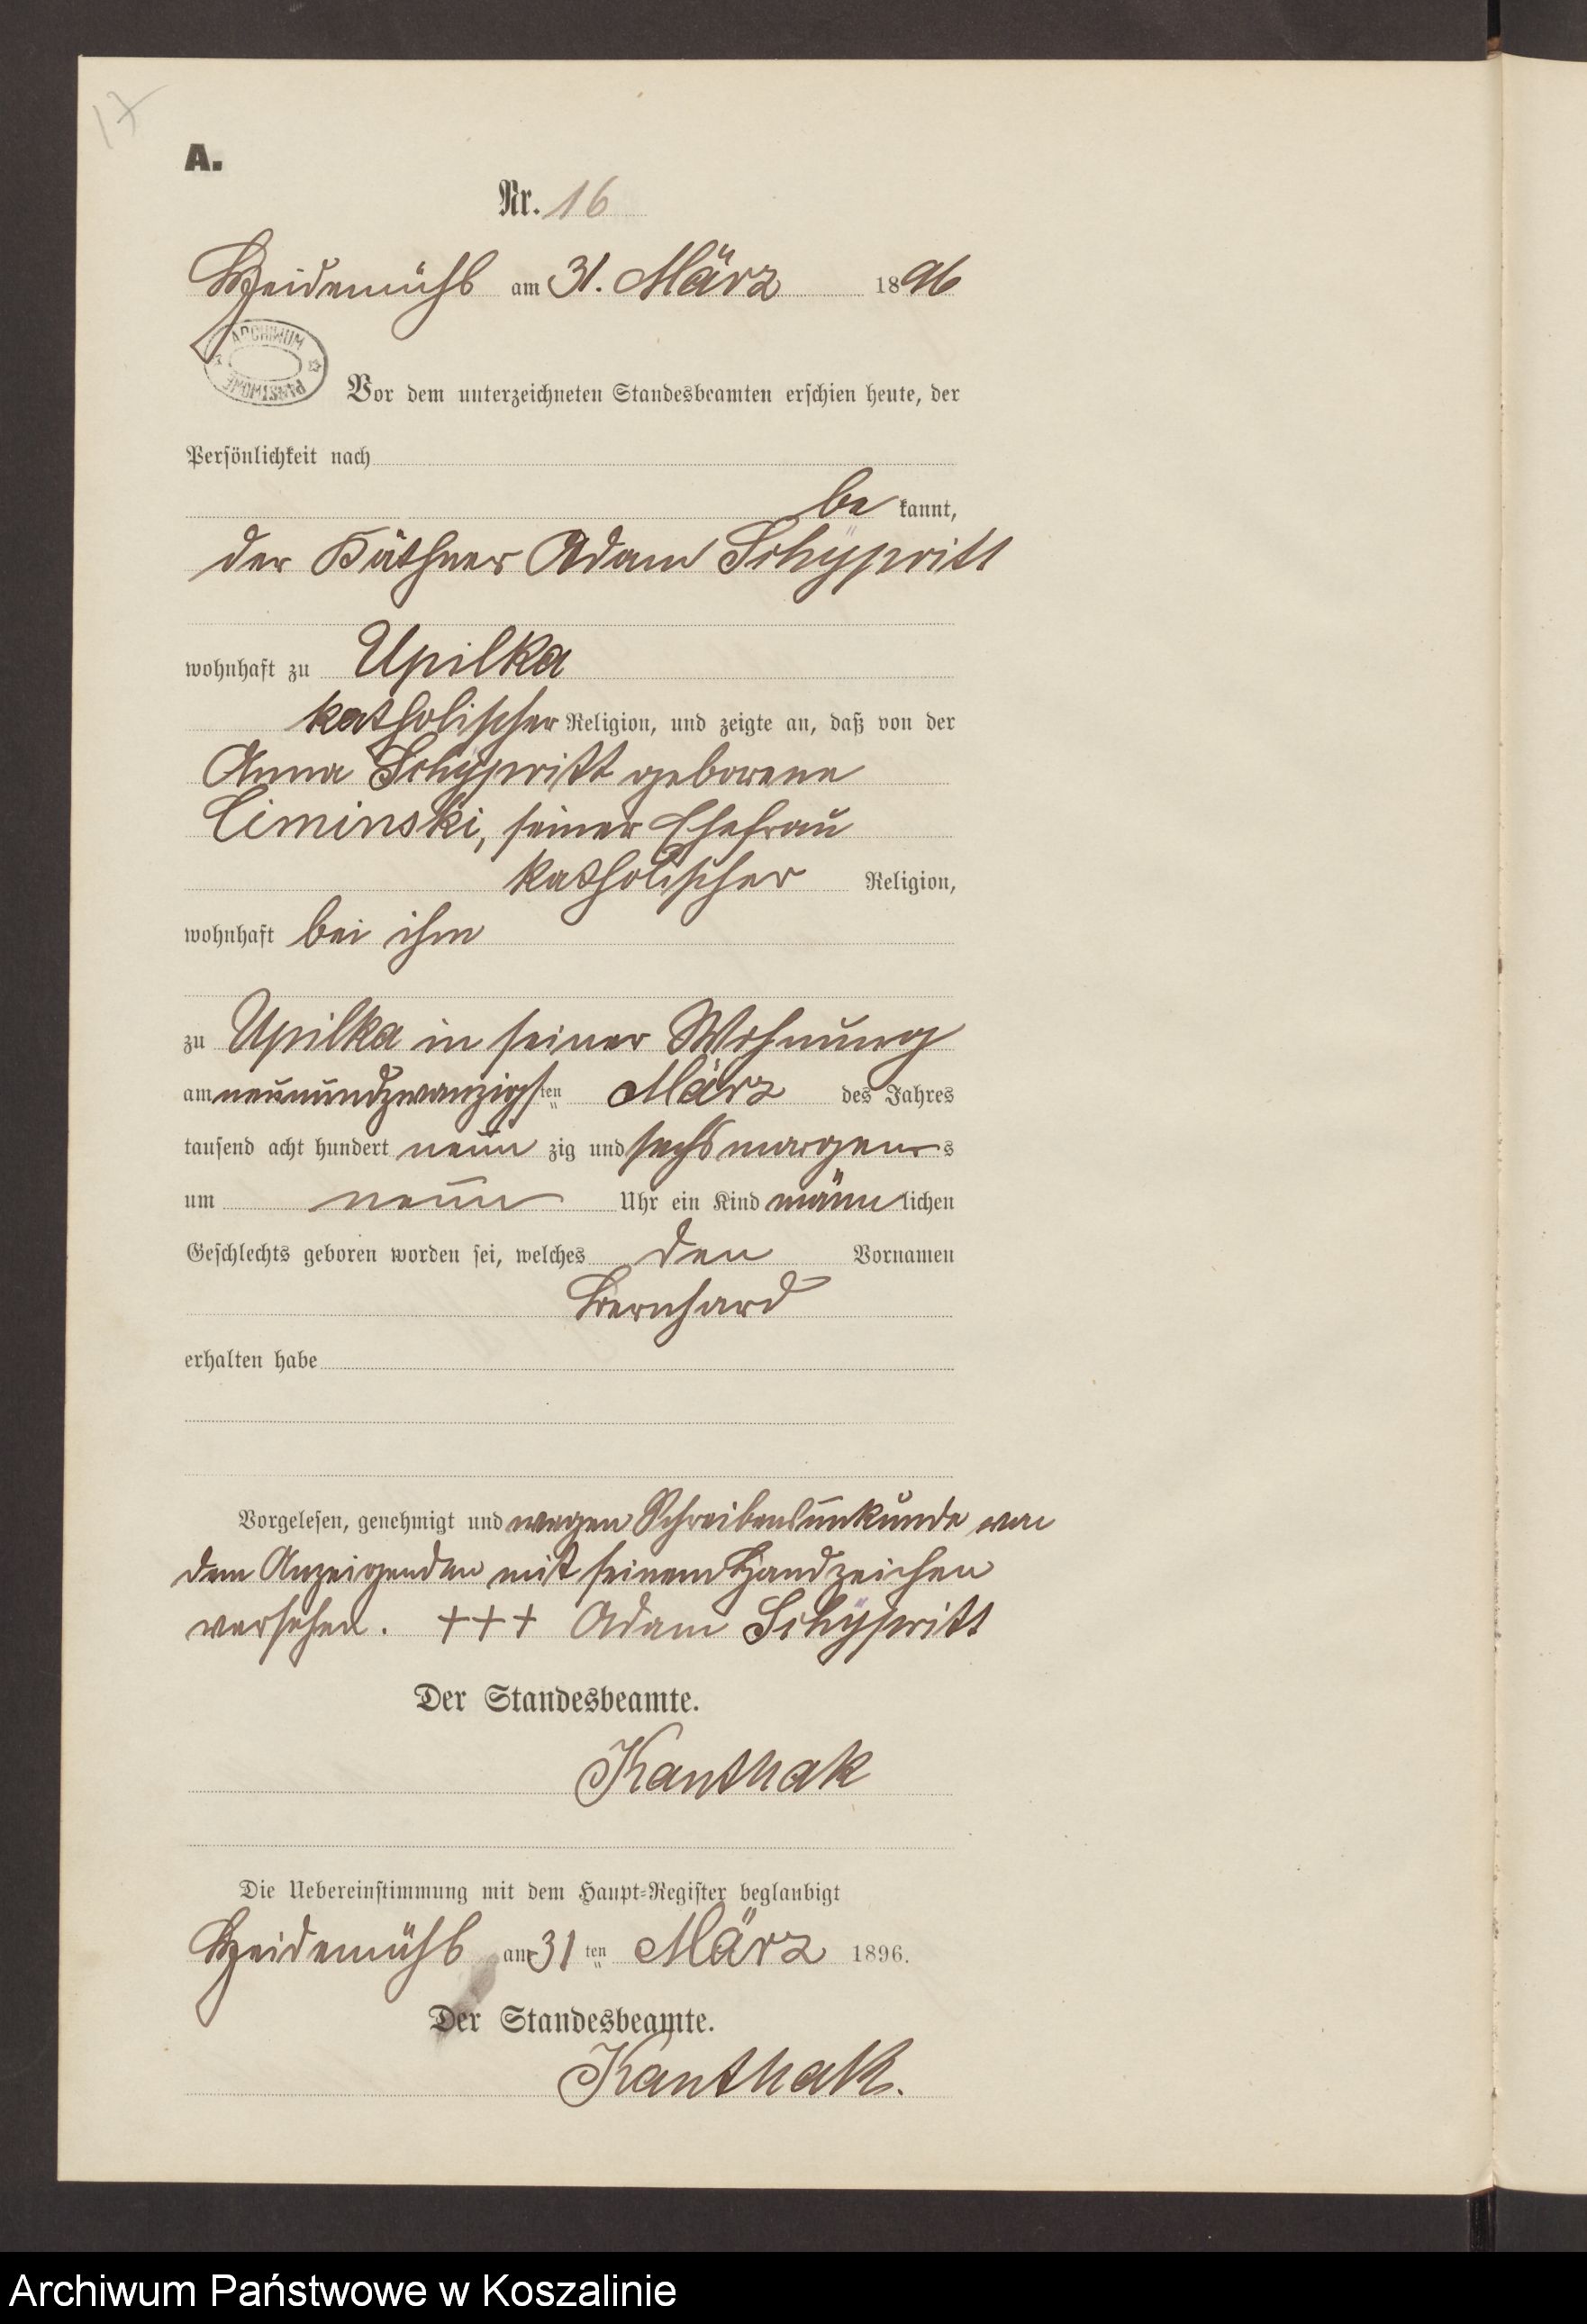 17
A.
Nr. 16
Heidemühl am 31. März 1896
ARCHIWUM
PAŃSTWOWE
Vor dem unterzeichneten Standesbeamten erschien heute, der
Persönlichkeit nach
be kannt,
der Käthner Adam Schypritt
wohnhaft zu Upilka
katholischer Religion, und zeigte an, daß von der
Anna Schypritt geborene
Ciminski, seiner Ehefrau
katholischer Religion,
wohnhaft bei ihm
zu Upilka in seiner Wohnung
am neunundzwanzigsten März des Jahres
tausend acht hundert neun zig und sechs morgens
um neun Uhr ein Kind männlichen
Geschlechts geboren worden sei, welches den Vornamen
Bernhard
erhalten habe
Vorgelesen, genehmigt und wegen Schreibensunkunde von
dem Anzeigenden mit seinem Handzeichen
versehen. +++ Adam Schypritt
Der Standesbeamte.
Kanthak
Die Uebereinstimmung mit dem Haupt-Register beglaubigt
Heidemühl am 31 ten März 1896.
Der Standesbeamte.
Kanthak.
Archiwum Państwowe w Koszalinie